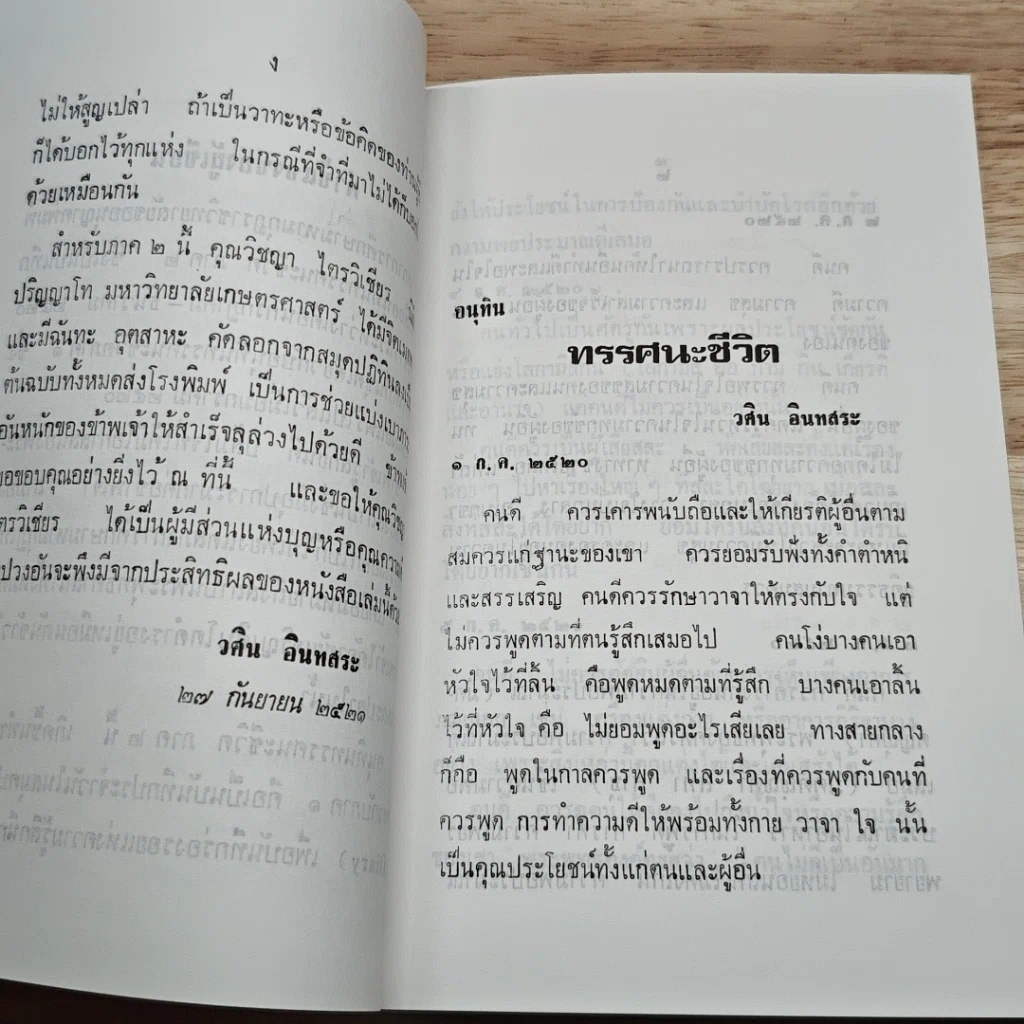 ง
ไม่ให้สูญเปล่า ถ้าเป็นวาทะหรือข้อคิดของท่านผู้
ก็ได้บอกไว้ทุกแห่ง ในกรณีที่จำที่มาไม่ได้ก็
ด้วยเหมือนกัน
สำหรับภาค ๒ นี้ คุณวิชญา ไตรวิเชียร
ปริญญาโท มหาวิทยาลัยเกษตรศาสตร์ ได้มีจิต
และมีฉันทะ อุตสาหะ คัดลอกจากสมุดปฏิทิน
ต้นฉบับทั้งหมดส่งโรงพิมพ์ เป็นการช่วยแบ่งเบา
อันหนักของข้าพเจ้าให้สำเร็จลุล่วงไปด้วยดี
ขอขอบคุณอย่างยิ่งไว้ ณ ที่นี้ และขอให้คุณ
ตรวิเชียร ได้เป็นผู้มีส่วนแห่งบุญหรือคุณความ
ปวงอันจะพึงมีจากประสิทธิผลของหนังสือเล่มนี้
วศิน อินทสระ
๒๗ กันยายน ๒๕๒๑
อนุทิน
ทรรศนะชีวิต
วศิน อินทสระ
๑ ก. ค. ๒๕๒๐
คนดี ควรเคารพนับถือและให้เกียรติผู้อื่นตาม
สมควรแก่ฐานะของเขา ควรยอมรับฟังทั้งคำตำหนิ
และสรรเสริญ คนดีควรรักษาวาจาให้ตรงกับใจ แต่
ไม่ควรพูดตามที่ตนรู้สึกเสมอไป คนโง่บางคนเอา
หัวใจไว้ที่ลิ้น คือพูดหมดตามที่รู้สึก บางคนเอาลิ้น
ไว้ที่หัวใจ คือ ไม่ยอมพูดอะไรเสียเลย ทางสายกลาง
ก็คือ พูดในกาลควรพูด และเรื่องที่ควรพูดกับคนที่
ควรพูด การทำความดีให้พร้อมทั้งกาย วาจา ใจ นั้น
เป็นคุณประโยชน์ทั้งแก่ตนและผู้อื่น